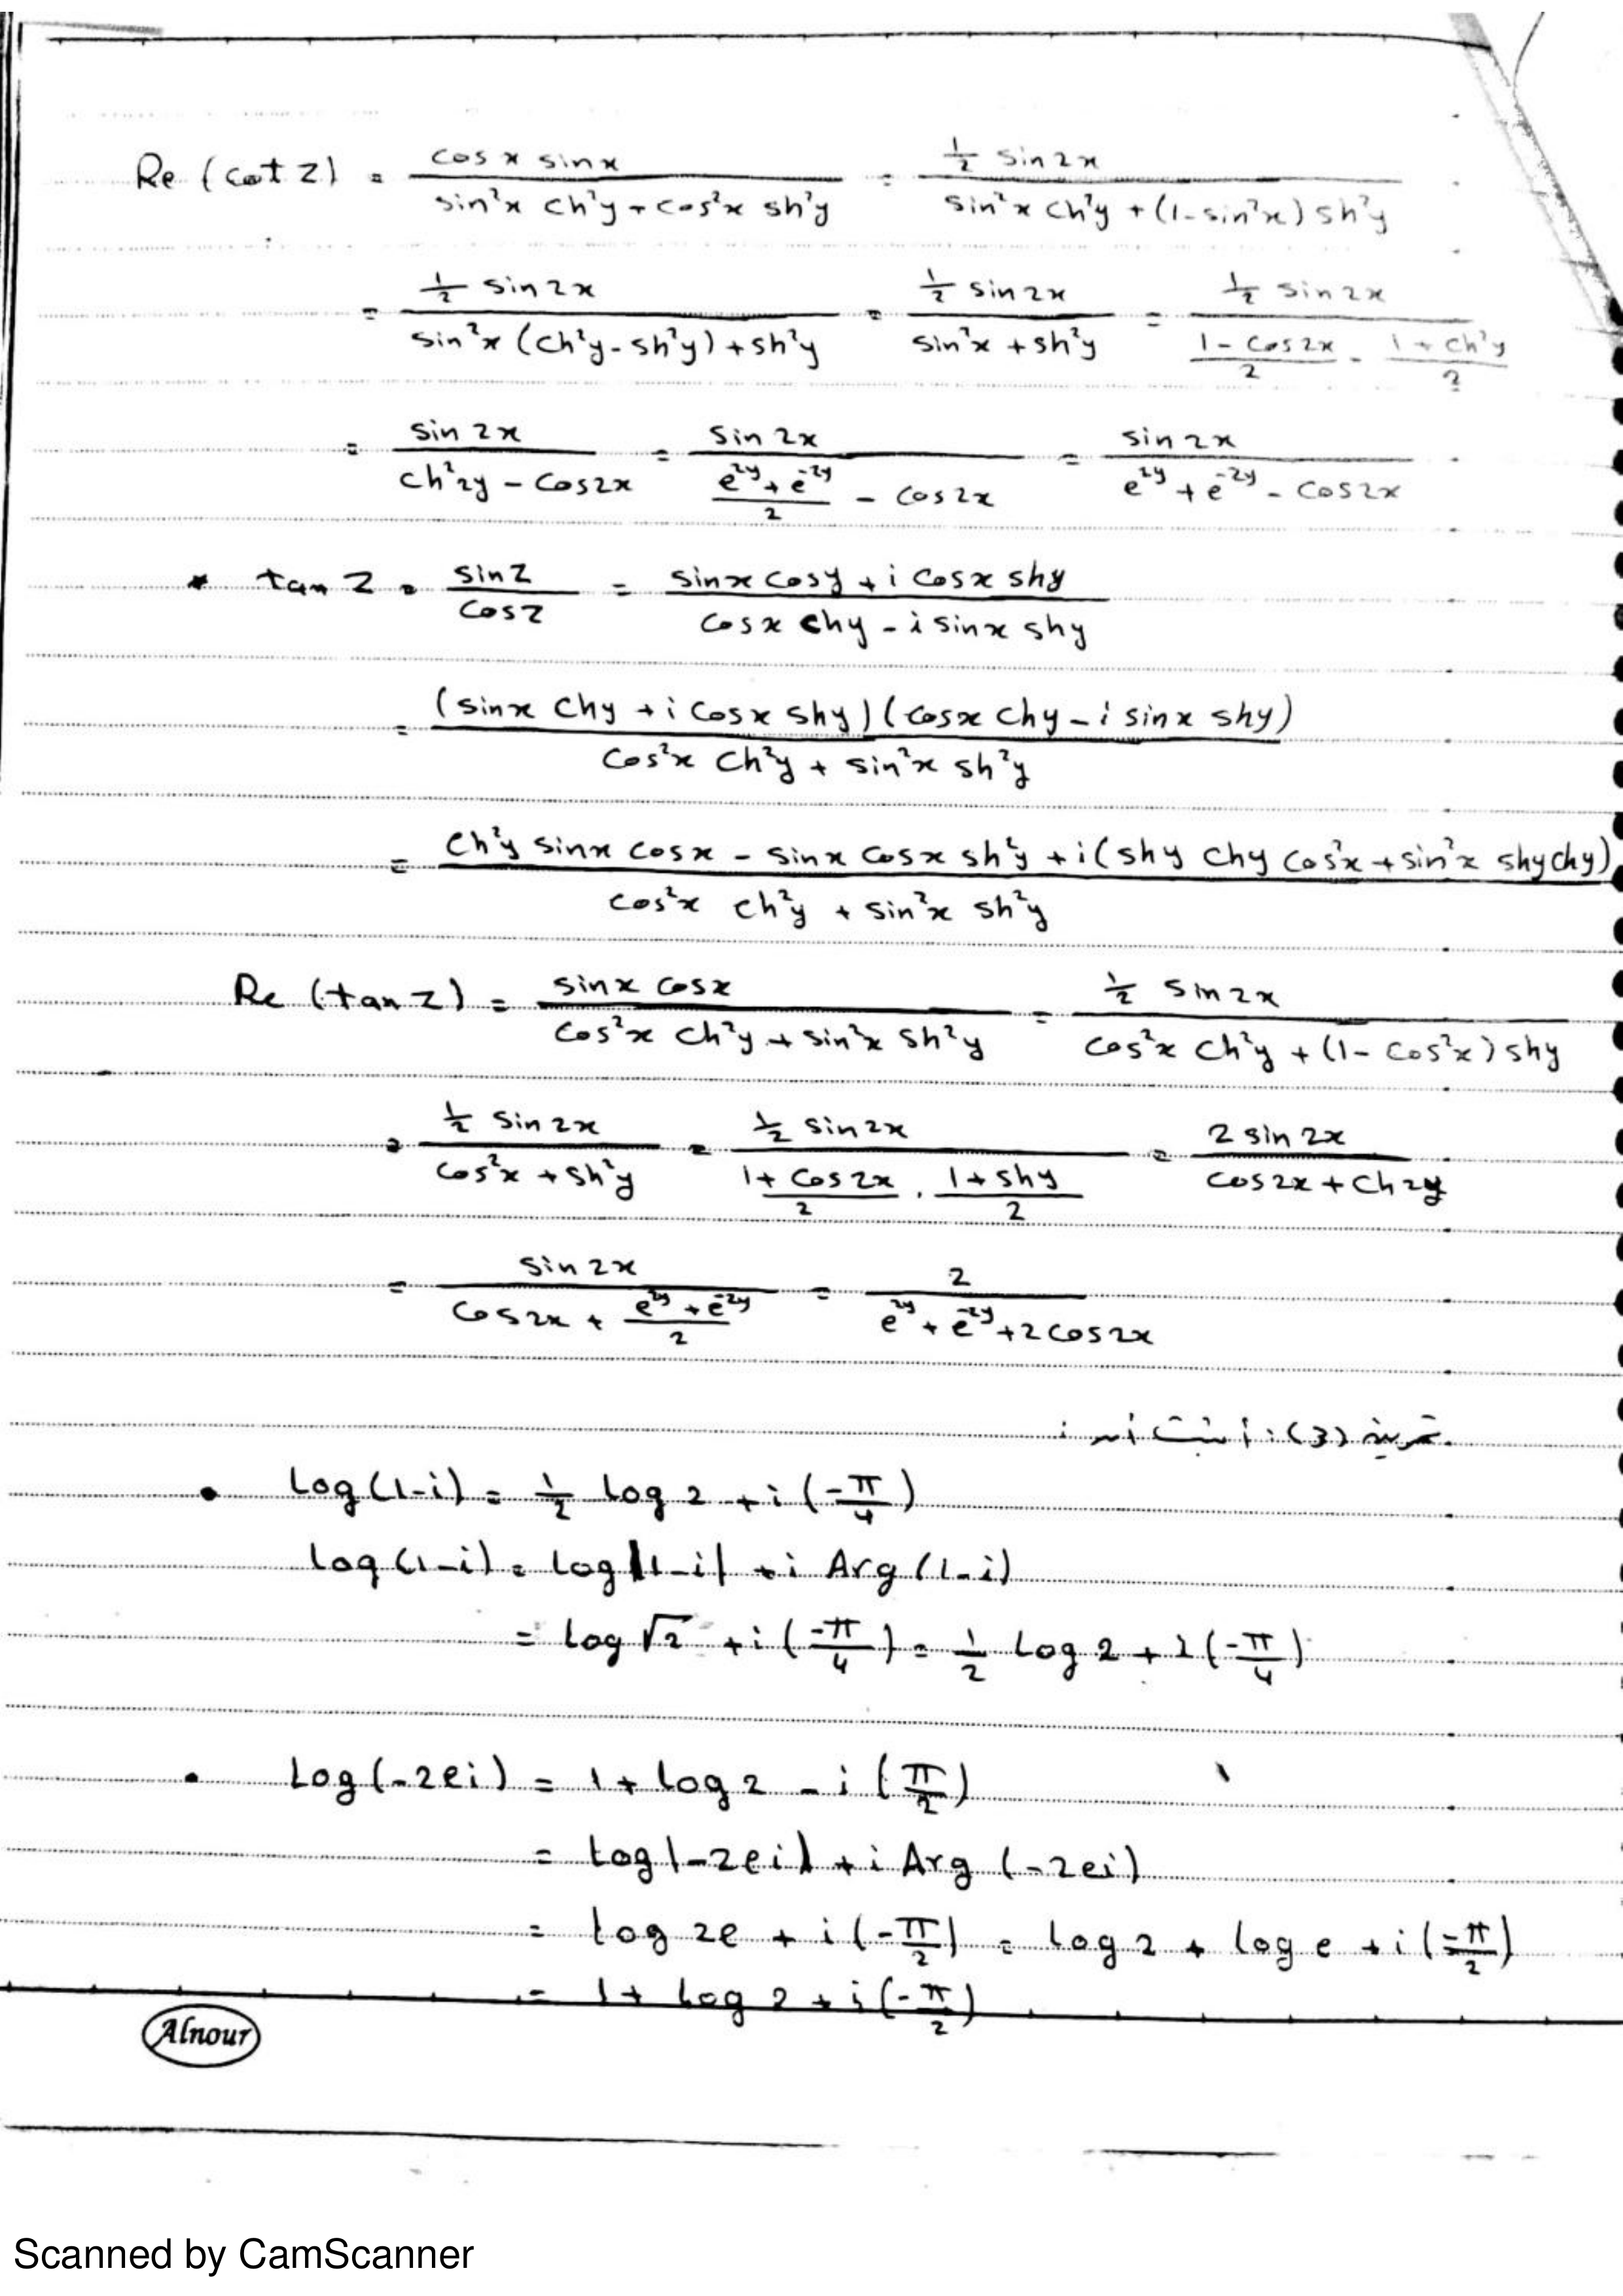 Re (cot z) = cos x sin x / (sin²x ch²y + cos²x sh²y) = ½ sin 2x / (sin²x ch²y + (1-sin²x) sh²y)
= ½ sin 2x / (sin²x (ch²y - sh²y) + sh²y) = ½ sin 2x / (sin²x + sh²y) = ½ sin 2x / ((1 - cos 2x)/2 - (1 + ch²y)/2)
= sin 2x / (ch²2y - cos 2x) = sin 2x / ((e^{2y} + e^{-2y})/2 - cos 2x) = sin 2x / (e^{2y} + e^{-2y} - cos 2x)
* tan z = sin z / cos z = (sin x cos y + i cos x sh y) / (cos x ch y - i sin x sh y)
= (sin x ch y + i cos x sh y)(cos x ch y - i sin x sh y) / (cos²x ch²y + sin²x sh²y)
= (ch²y sin x cos x - sin x cos x sh²y + i(sh y ch y cos²x + sin²x sh y ch y)) / (cos²x ch²y + sin²x sh²y)
Re (tan z) = sin x cos x / (cos²x ch²y + sin²x sh²y) = ½ sin 2x / (cos²x ch²y + (1 - cos²x) sh y)
= ½ sin 2x / (cos²x + sh²y) = ½ sin 2x / ((1 + cos 2x)/2 . (1 + sh y)/2) = 2 sin 2x / (cos 2x + ch 2y)
= sin 2x / (cos 2x + (e^{2y} + e^{-2y})/2) = 2 / (e^{2y} + e^{-2y} + 2 cos 2x)
تمرين (3): أثبت أن :
• Log(1-i) = ½ log 2 + i (-π/4)
Log(1-i) = Log|1-i| + i Arg (1-i)
= Log √2 + i (-π/4) = ½ Log 2 + i (-π/4)
• Log(-2ei) = 1 + log 2 - i (π/2)
= Log|-2ei| + i Arg (-2ei)
= log 2e + i (-π/2) = log 2 + log e + i (-π/2)
= 1 + Log 2 + i (-π/2)
Alnour
Scanned by CamScanner